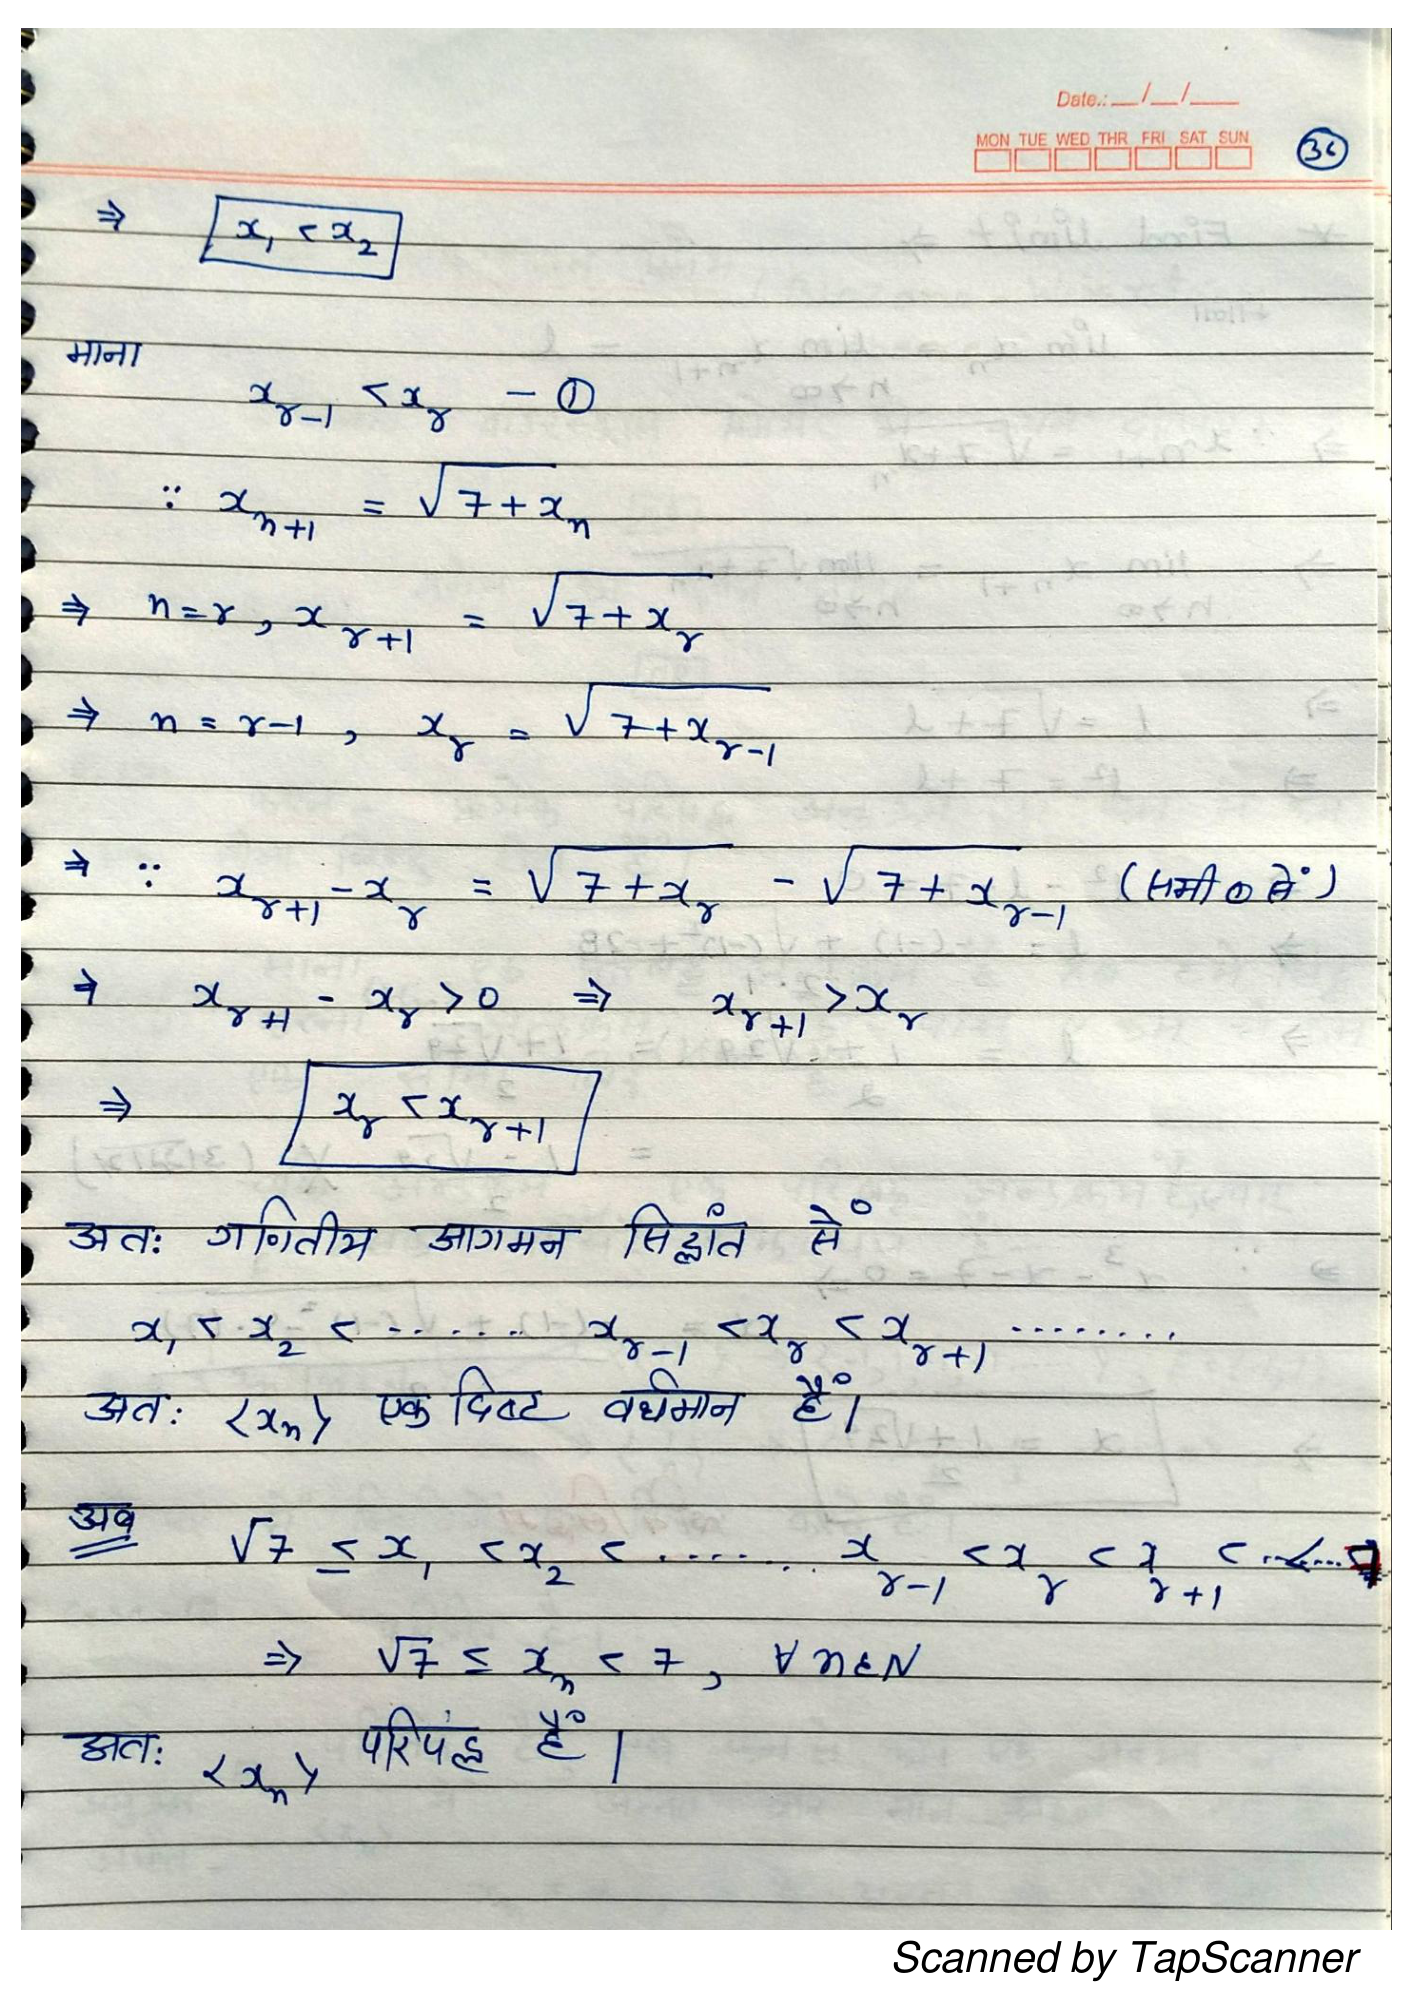 Date.: __/__/___
MON TUE WED THR FRI SAT SUN
36
⇒ x₁ < x₂
माना
x_{r-1} < x_r - ①
∵ x_{n+1} = √(7 + x_n)
⇒ n = r, x_{r+1} = √(7 + x_r)
⇒ n = r-1, x_r = √(7 + x_{r-1})
⇒ ∵ x_{r+1} - x_r = √(7 + x_r) - √(7 + x_{r-1}) (समी ① सें)
⇒ x_{r+1} - x_r > 0 ⇒ x_{r+1} > x_r
⇒ x_r < x_{r+1}
अतः गणितीय आगमन सिद्धांत सें
x₁ < x₂ < ....... x_{r-1} < x_r < x_{r+1} ........
अतः <x_n> एक दिष्ट वर्धमान हैं।
अब √7 ≤ x₁ < x₂ < ....... x_{r-1} < x_r < x_{r+1} < ..<... 7
⇒ √7 ≤ x_n < 7, ∀ n ∈ N
अतः <x_n> परिबद्ध हैं।
Scanned by TapScanner